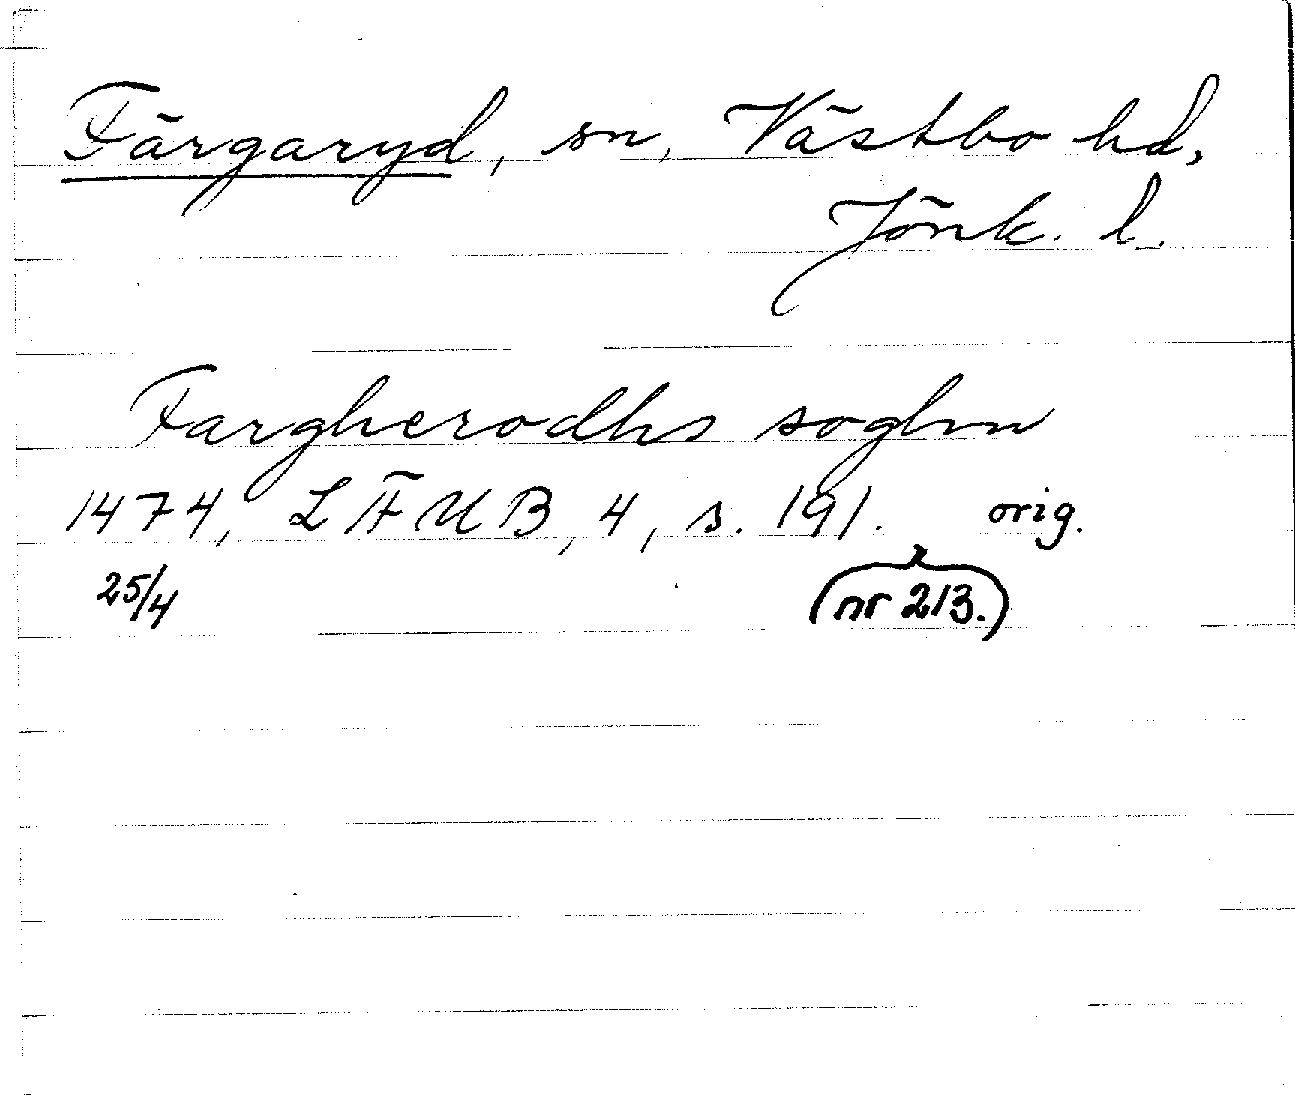 Färgaryd, sn, Västbo hd,
Jönk. l.
Fargherodhs soghn
1474, LFUB, 4, s. 191. orig.
25/4 (nr 213.)